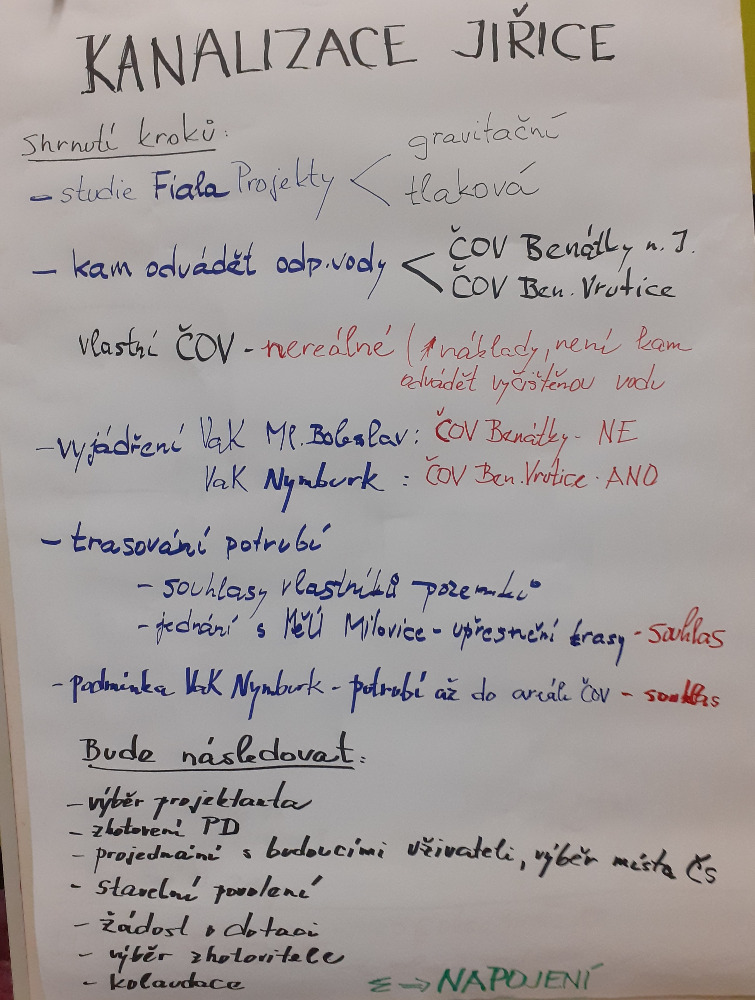 KANALIZACE JIŘICE
Shrnutí kroků:
- studie Fiala Projekty < gravitační
tlaková
- kam odvádět odp. vody < ČOV Benátky n. J.
ČOV Ben. Vrutice
vlastní ČOV - nereálné (↑ náklady, není kam
odvádět vyčištěnou vodu
- vyjádření VaK Ml. Boleslav: ČOV Benátky - NE
VaK Nymburk : ČOV Ben. Vrutice - ANO
- trasování potrubí
- souhlasy vlastníků pozemků
- jednání s MěÚ Milovice - upřesnění trasy - souhlas
- podmínka VaK Nymburk - potrubí až do areálu ČOV - souhlas
Bude následovat:
- výběr projektanta
- zhotovení PD
- projednání s budoucími uživateli, výběr místa ČS
- stavební povolení
- žádost o dotaci
- výběr zhotovitele
- kolaudace
Σ → NAPOJENÍ